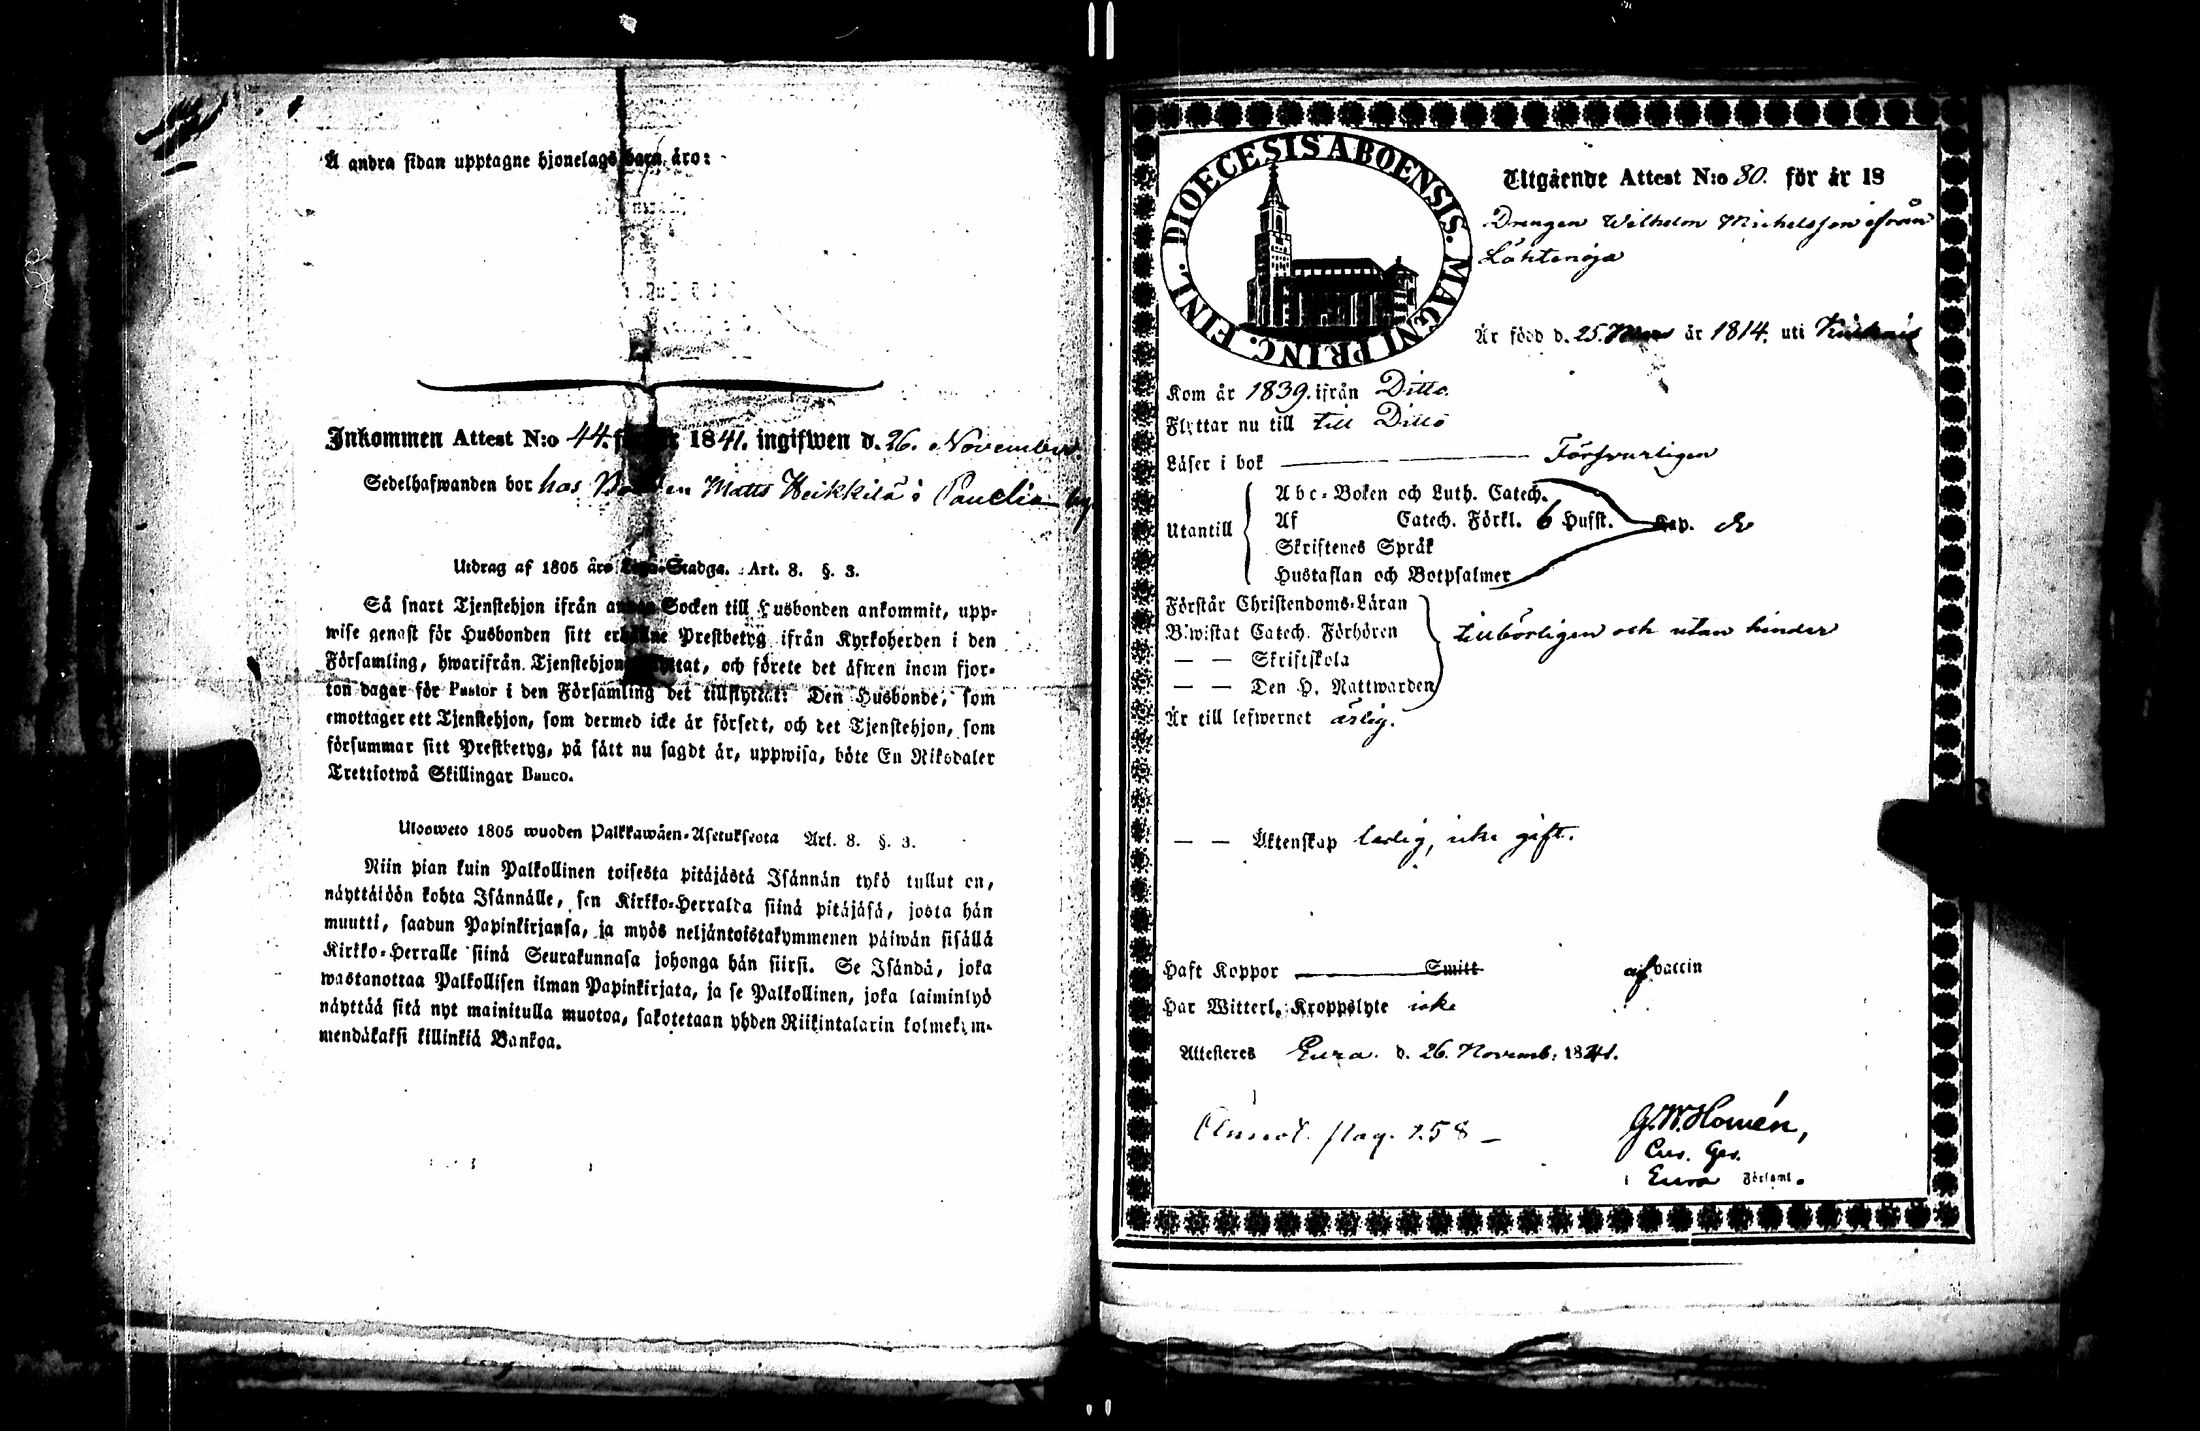 Å andra sidan upptagne hjonelags barn äro:
Inkommen Attest N:o 44. för år 1841. ingifwen d. 26. November.
Sedelhafwanden bor hos Bonden Matts Heikkilä i Panelia by
Utdrag af 1805 års Lego-Stadga. Art. 8. §. 3.
Så snart Tjenstehjon ifrån annan Socken till Husbonden ankommit, upp-
wise genast för Husbonden sitt erhållne Prestbetyg ifrån Kyrkoherden i den
Församling, hwarifrån Tjenstehjonet flyttat, och förete det äfwen inom fjor-
ton dagar för Pastor i den Församling det tillflyttat: Den Husbonde, som
emottager ett Tjenstehjon, som dermed icke är försedt, och det Tjenstehjon, som
försummar sitt Prestbetyg, på sätt nu sagdt är, uppwisa, böte En Riksdaler
Trettiotwå Skillingar Banco.
Ulosweto 1805 wuoden Palkkawäen-Asetuksesta Art. 8. §. 3.
Niin pian kuin Palkollinen toisesta pitäjästä Isännän tykö tullut on,
näyttäköön kohta Isännälle, sen Kirkko-Herralda siinä pitäjäsä, josta hän
muutti, saadun Papinkirjansa, ja myös neljäntoistakymmenen päiwän sisällä
Kirkko-Herralle siinä Seurakunnasa johonga hän siirsi. Se Isändä, joka
wastanottaa Palkollisen ilman Papinkirjata, ja se Palkollinen, joka laiminlyö
näyttää sitä nyt mainitulla muotoa, sakotetaan yhden Riikintalarin kolmekym-
mendäkaksi killinkiä Bankoa.
DIOECESIS ABOENSIS. MAGNI PRINC. FINL.
Utgående Attest N:o 80. för år 18
Drengen Wilhelm Michelsson ifrån
Lähteenoja
Är född d. 25. Mars år 1814. uti
Kom år 1839. ifrån Ditto.
Flyttar nu till till Ditto
Läser i bok Försvarligen
Utantill
Abc-Boken och Luth. Catech.
Af Catech. Förkl. 6 Hufst. Kap. &
Skriftenes Språk
Hustaflan och Botpsalmer
Förstår Christendoms-Läran
Biwistat Catech. Förhören tillbörligen och utan hinder
— — Skriftskola
— — Den H. Nattwarden
Är till lefwernet ärlig.
— — Äktenskap ledig, icke gift.
Haft Koppor Smitt af vaccin
Har Witterl. Kroppslyte icke
Attesteres Eura. d. 26. Novemb: 1841.
Annot. pag. 258 —
G.W. Homén,
i Eura Församl.